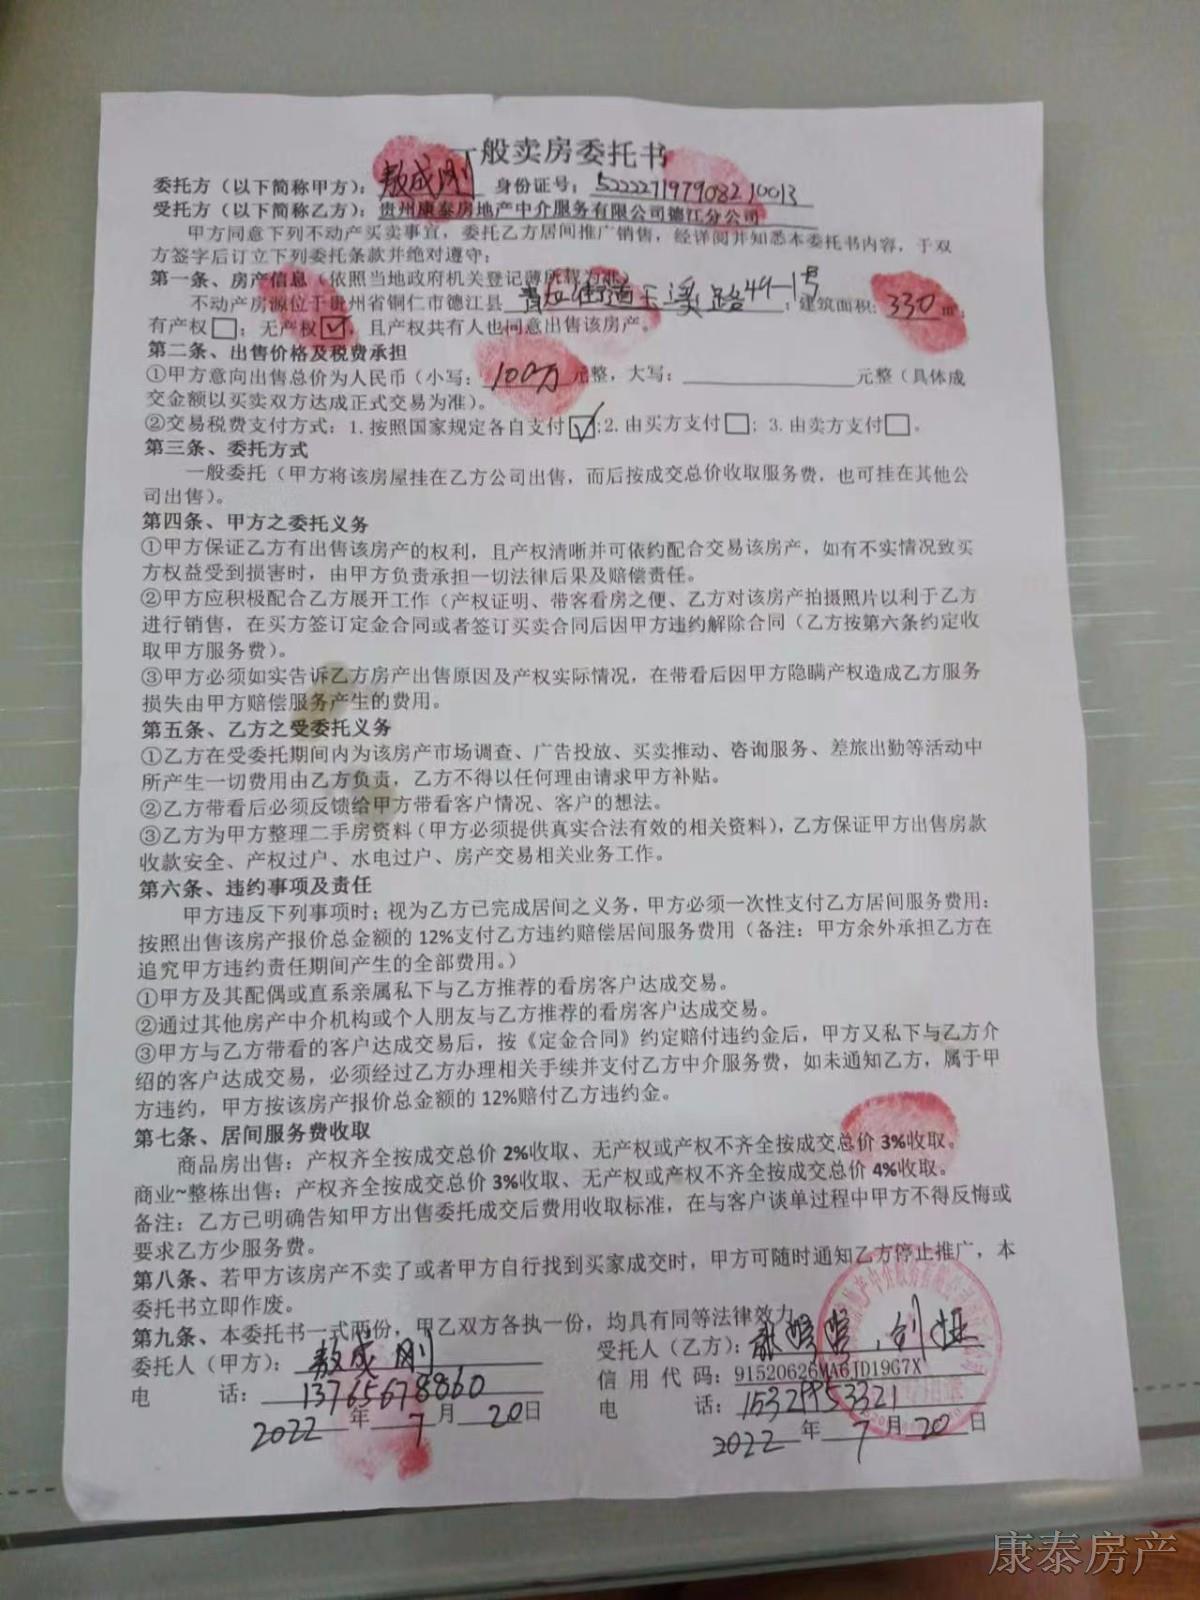 一般卖房委托书
委托方（以下简称甲方）：敖成刚 身份证号：522227197908210013
受托方（以下简称乙方）：贵州康泰房地产中介服务有限公司德江分公司
甲方同意下列不动产买卖事宜，委托乙方居间推广销售，经详阅并知悉本委托书内容，于双
方签字后订立下列委托条款并绝对遵守：
第一条、房产信息（依照当地政府机关登记薄所载为准）
不动产房源位于贵州省铜仁市德江县 青龙街道玉溪路49-1号；建筑面积：330㎡；
有产权□；无产权☑，且产权共有人也同意出售该房产。
第二条、出售价格及税费承担
①甲方意向出售总价为人民币（小写：100万元整，大写：元整（具体成
交金额以买卖双方达成正式交易为准）。
②交易税费支付方式：1.按照国家规定各自支付☑；2.由买方支付□；3.由卖方支付□。
第三条、委托方式
一般委托（甲方将该房屋挂在乙方公司出售，而后按成交总价收取服务费，也可挂在其他公
司出售）。
第四条、甲方之委托义务
①甲方保证乙方有出售该房产的权利，且产权清晰并可依约配合交易该房产，如有不实情况致买
方权益受到损害时，由甲方负责承担一切法律后果及赔偿责任。
②甲方应积极配合乙方展开工作（产权证明、带客看房之便、乙方对该房产拍摄照片以利于乙方
进行销售，在买方签订定金合同或者签订买卖合同后因甲方违约解除合同（乙方按第六条约定收
取甲方服务费）。
③甲方必须如实告诉乙方房产出售原因及产权实际情况，在带看后因甲方隐瞒产权造成乙方服务
损失由甲方赔偿服务产生的费用。
第五条、乙方之受委托义务
①乙方在受委托期间内为该房产市场调查、广告投放、买卖推动、咨询服务、差旅出勤等活动中
所产生一切费用由乙方负责，乙方不得以任何理由请求甲方补贴。
②乙方带看后必须反馈给甲方带看客户情况、客户的想法。
③乙方为甲方整理二手房资料（甲方必须提供真实合法有效的相关资料），乙方保证甲方出售房款
收款安全、产权过户、水电过户、房产交易相关业务工作。
第六条、违约事项及责任
甲方违反下列事项时；视为乙方已完成居间之义务，甲方必须一次性支付乙方居间服务费用：
按照出售该房产报价总金额的 12%支付乙方违约赔偿居间服务费用（备注：甲方余外承担乙方在
追究甲方违约责任期间产生的全部费用。）
①甲方及其配偶或直系亲属私下与乙方推荐的看房客户达成交易。
②通过其他房产中介机构或个人朋友与乙方推荐的看房客户达成交易。
③甲方与乙方带看的客户达成交易后，按《定金合同》约定赔付违约金后，甲方又私下与乙方介
绍的客户达成交易，必须经过乙方办理相关手续并支付乙方中介服务费，如未通知乙方，属于甲
方违约，甲方按该房产报价总金额的 12%赔付乙方违约金。
第七条、居间服务费收取
商品房出售：产权齐全按成交总价 2%收取、无产权或产权不齐全按成交总价 3%收取。
商业~整栋出售：产权齐全按成交总价 3%收取、无产权或产权不齐全按成交总价 4%收取。
备注：乙方已明确告知甲方出售委托成交后费用收取标准，在与客户谈单过程中甲方不得反悔或
要求乙方少服务费。
第八条、若甲方该房产不卖了或者甲方自行找到买家成交时，甲方可随时通知乙方停止推广，本
委托书立即作废。
第九条、本委托书一式两份，甲乙双方各执一份，均具有同等法律效力
委托人（甲方）：敖成刚
电话：13765678860
2022年7月20日
受托人（乙方）：
信用代码：91520626MA6JD19G7X
电话：
2022年7月20日
康泰房产